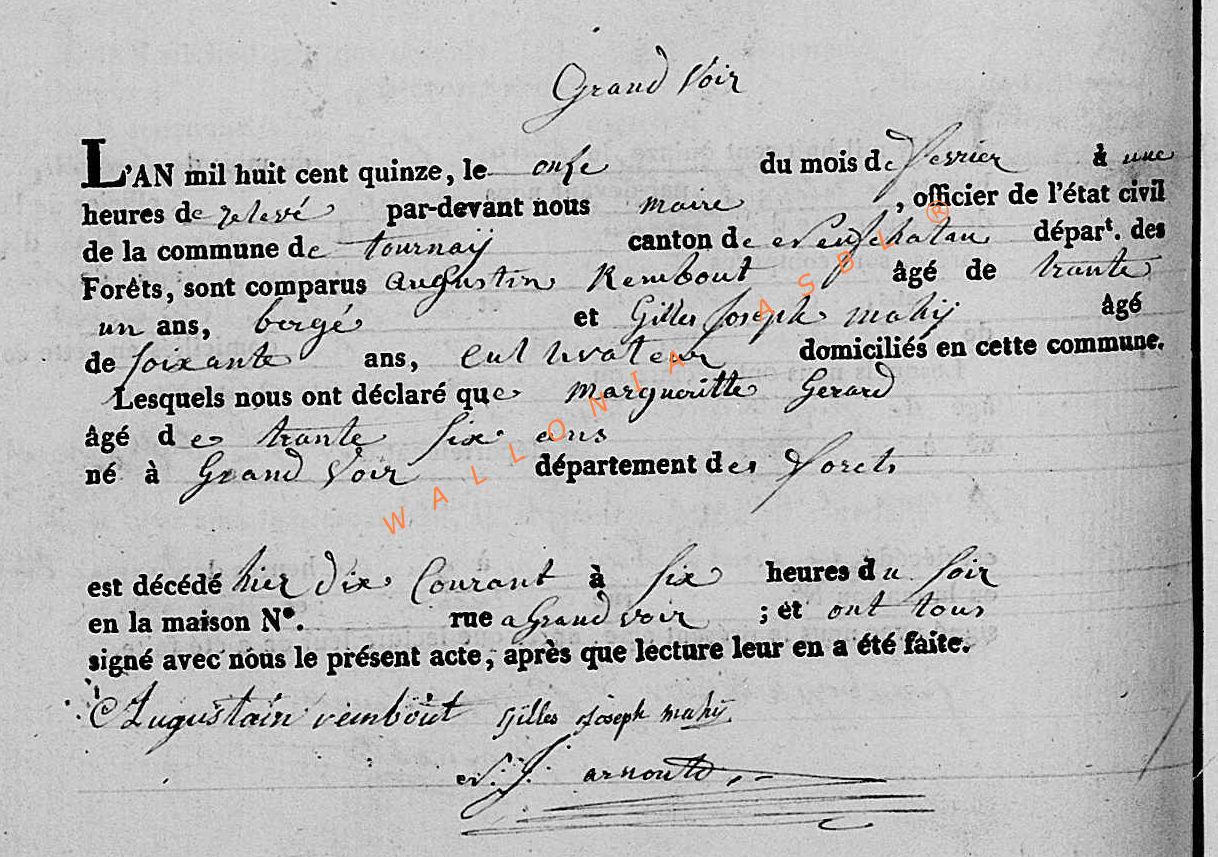 Grand Voir
L'AN mil huit cent quinze, le onse du mois de fevrier à une
heures de relevé par-devant nous maire, officier de l'état civil
de la commune de tournaÿ canton de Neufchatau départ. des
Forêts, sont comparus augustin Rembout âgé de trante
un ans, bergé et Gilles Joseph mahÿ âgé
de soixante ans, cultivateur domiciliés en cette commune.
Lesquels nous ont déclaré que margueritte Gerard
âgé de trante six ans
né à Grand Voir département des forets
est décédé hier dix Courant à six heures du soir
en la maison N°. rue a Grand voir ; et ont tous
signé avec nous le présent acte, après que lecture leur en a été faite.
Augustain rembout Gilles Joseph mahÿ
arnould
WALLONIA ASBL ®